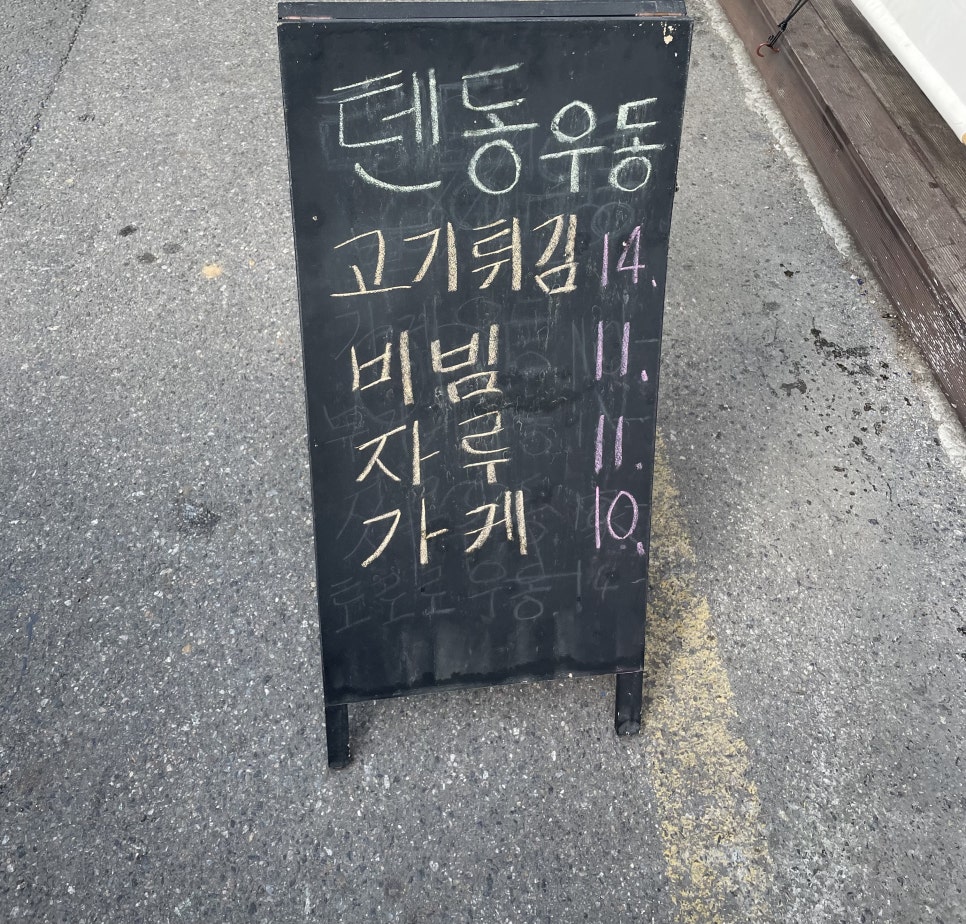 텐동 우동
고기튀김 14.
비빔 11.
자루 11.
가케 10.